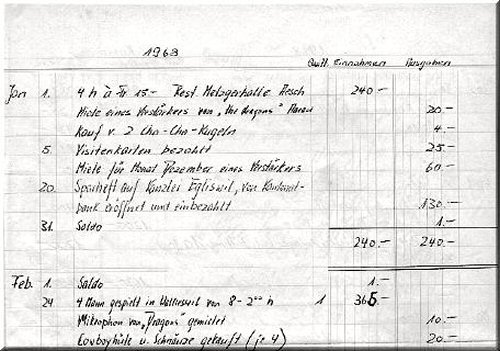 1968
Quitt. Einnahmen Ausgaben
Jan 1. 4 h à Fr 15.- Rest. Metzgerhalle Aesch 240.-
Miete eines Verstärkers von "The Dragons" Aarau 20.-
Kauf v. 2 Cha-Cha-Kugeln 4.-
5. Visitenkarten bezahlt 25.-
Miete für Monat Dezember eines Verstärkers 60.-
20. Sparheft auf Kanzlei Egliswil, von Kantonal-
bank eröffnet und einbezahlt 130.-
31. Saldo 1.-
240.- 240.-
Feb. 1. Saldo 1.-
24. 4 Mann gespielt in von 8 - 2⁰⁰ h 1 365.-
Mikrophon von "Dragons" gemietet 10.-
Cowboyhüte u. Schnäuze gekauft (je 4) 20.-